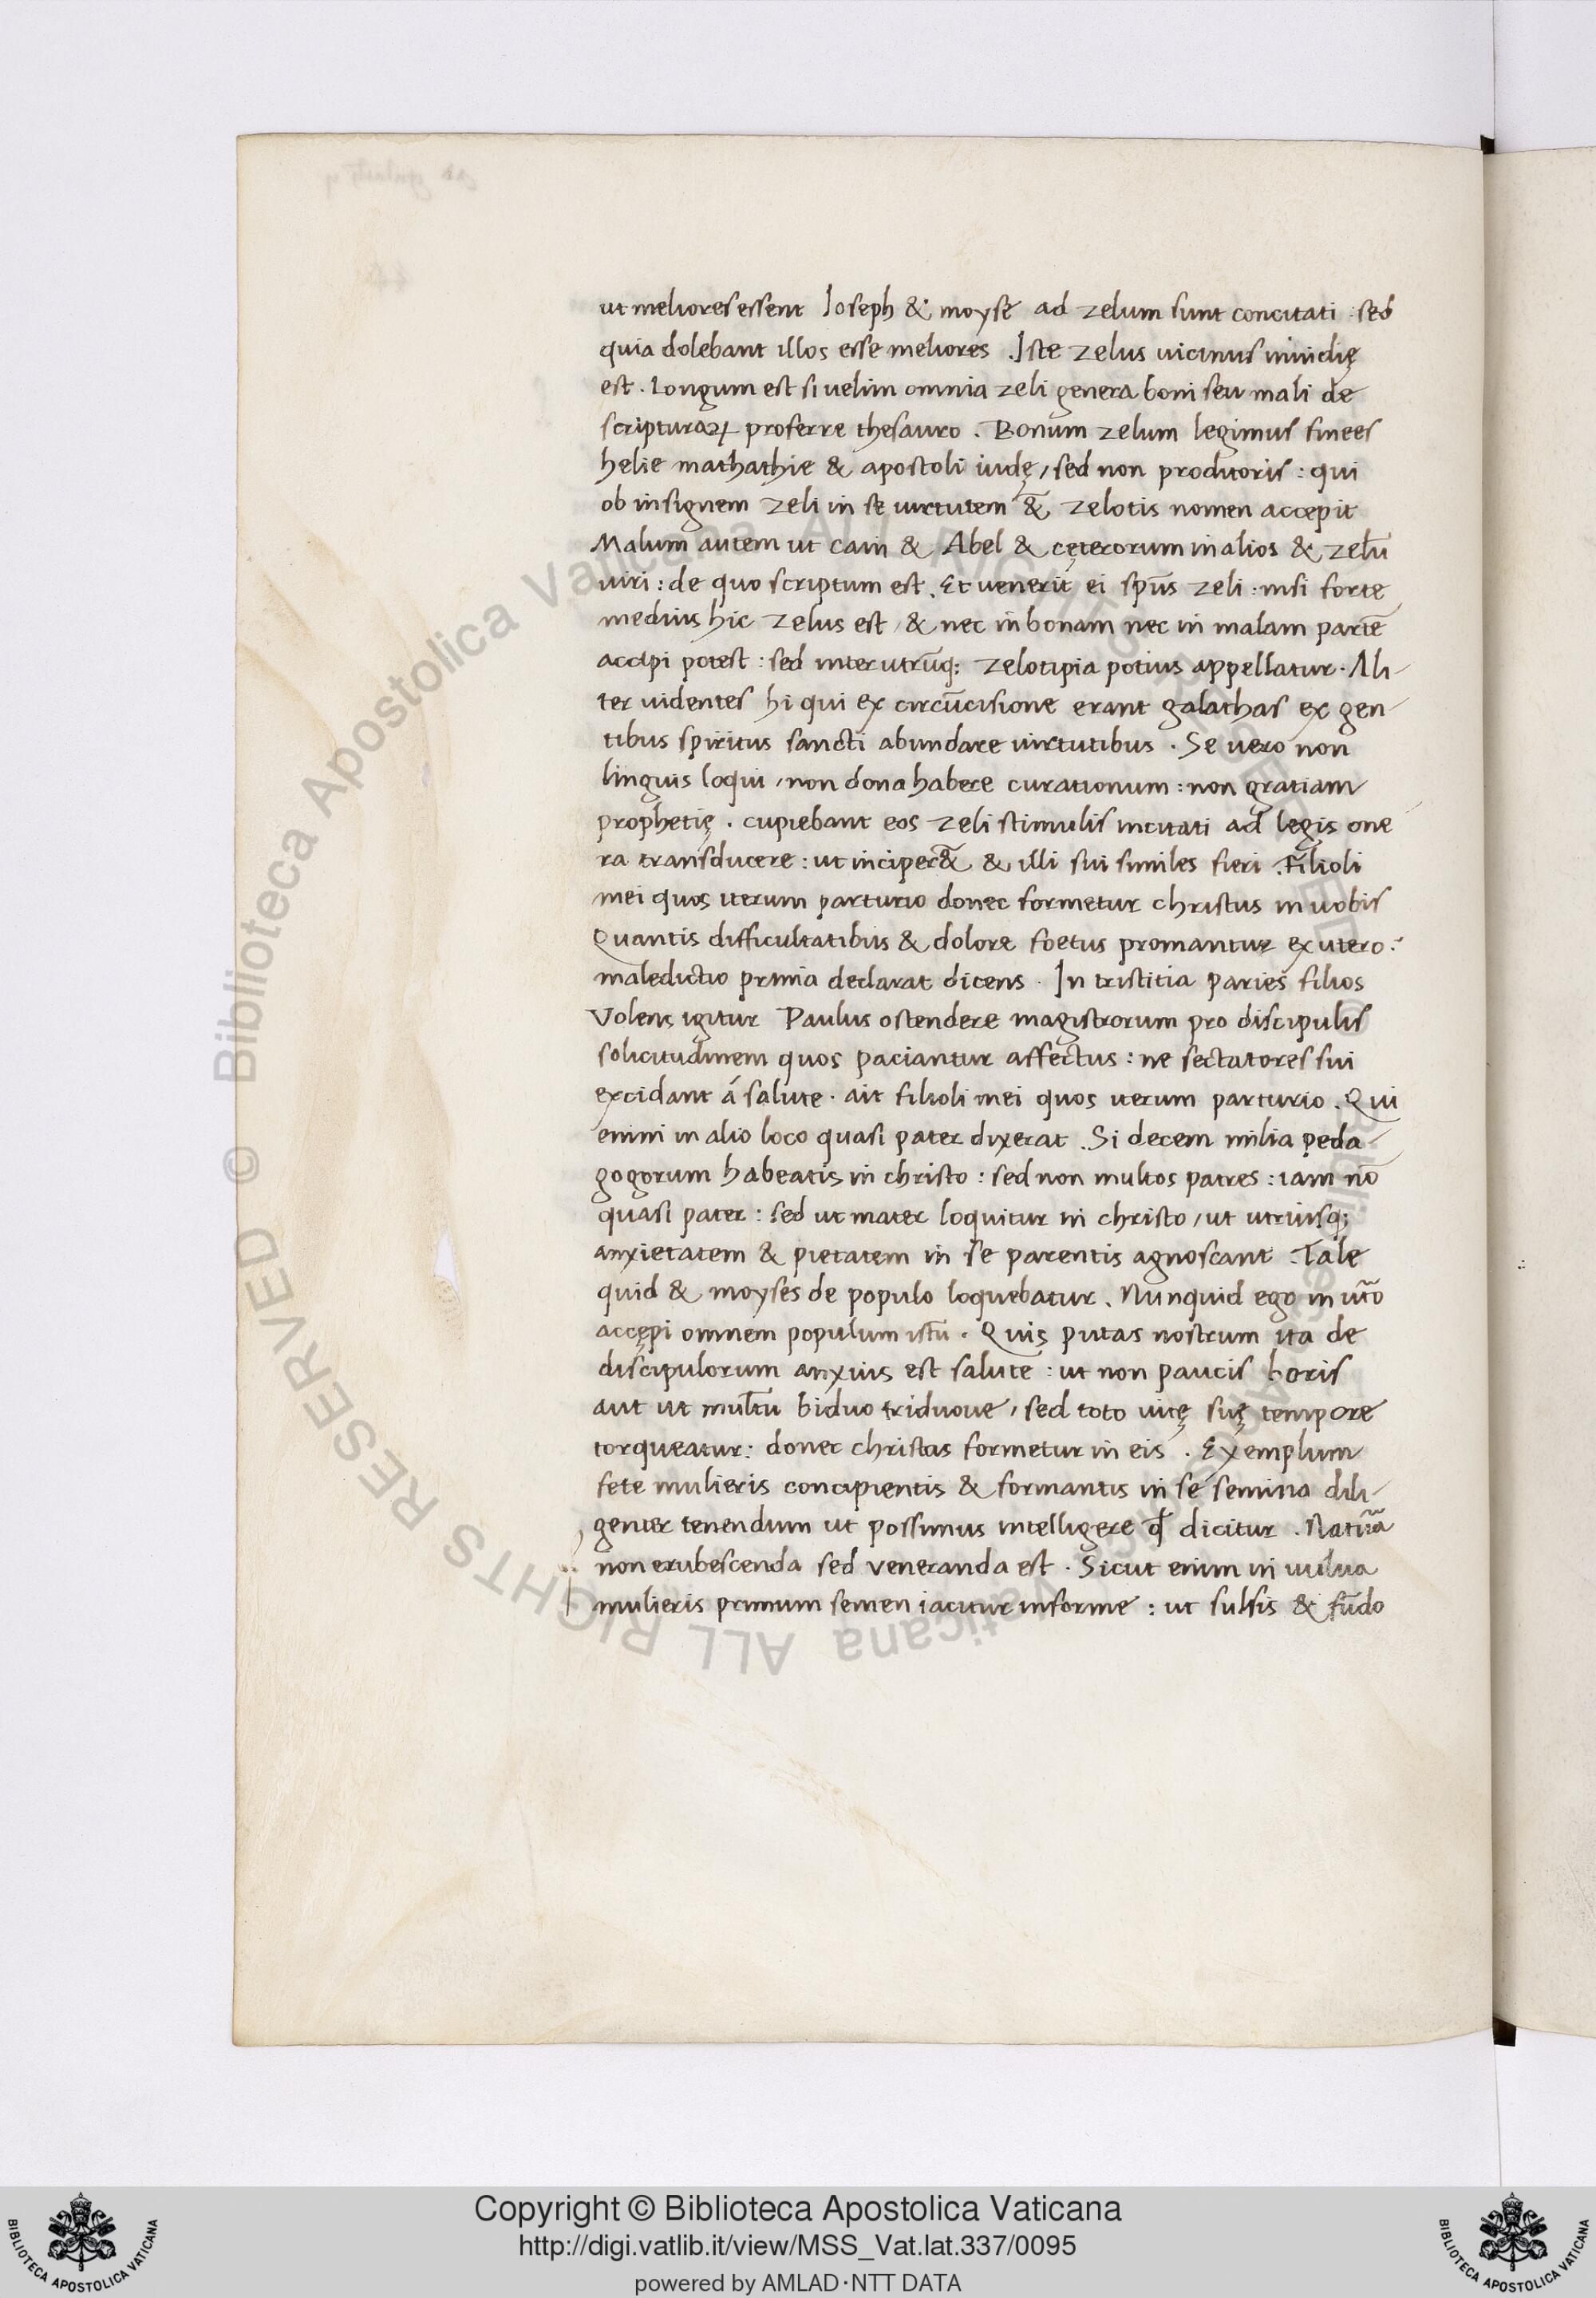 ut meliores essent Ioseph & moysē ad zelum sunt concitati : sed
quia dolebant illos esse meliores . Iste zelus uicinus inuidię
est . Longum est si uelim omnia zeli genera boni seu mali de
scripturaꝝ proferre thesauro . Bonum zelum legimus finees
helie mathathie & apostoli iudę , sed non proditoris : qui
ob insignem zeli in se uirtutem &̃ zelotis nomen accepit
Malum autem ut cain & Abel & cęterorum in alios & zelū
uiri : de quo scriptum est . Et venerit ei sp̄us zeli : nisi forte
medius hic zelus est , & nec in bonam nec in malam partē
accipi potest : sed inter utrūq; zelotipia potius appellatur . Ali-
ter uidentes hi qui ex circūcisione erant galathas ex gen-
tibus spiritus sancti abundare uirtutibus . Se uero non
linguis loqui , non dona habere curationum : non gratiam
prophetię . cupiebant eos zeli stimulis incitati ad legis one
ra transducere : ut inciper&̃ & illi sui similes fieri . Filioli
mei quos iterum parturio donec formetur christus in uobis
Quantis difficultatibus & dolore foetus promantur ex utero :
maledictio prima declarat dicens . In tristitia paries filios
Volens igitur Paulus ostendere magistrorum pro discipulis
solicitudinem quos paciantur affectus : ne sectatores sui
excidant á salute . ait filioli mei quos iterum parturio . Qui
enim in alio loco quasi pater dixerat . Si decem milia peda-
gogorum habeatis in christo : sed non multos patres : iam nō
quasi pater : sed ut mater loquitur in christo , ut utriusq;
anxietatem & pietatem in se parentis agnoscant . Tale
quid & moyses de populo loquebatur . Nunquid ego in ut̄o
accępi omnem populum istū . Quis putas nostrum ita de
discipulorum anxius est salute : ut non paucis horis
aut ut multū biduo triduoue , sed toto uitę suę tempore
torqueatur : donec christus formetur in eis . Exemplum
fete mulieris concipientis & formantis in se semina dili-
genter tenendum ut possimus intelligere qđ dicitur . Natuᷓa
non erubescenda sed veneranda est . Sicut enim in uulua
mulieris primum semen iacitur informe : ut sulsis & fūdo
© Biblioteca Apostolica Vaticana ALL RIGHTS RESERVED
Copyright © Biblioteca Apostolica Vaticana
http://digi.vatlib.it/view/MSS_Vat.lat.337/0095
powered by AMLAD·NTT DATA
BIBLIOTECA APOSTOLICA VATICANA
BIBLIOTECA APOSTOLICA VATICANA